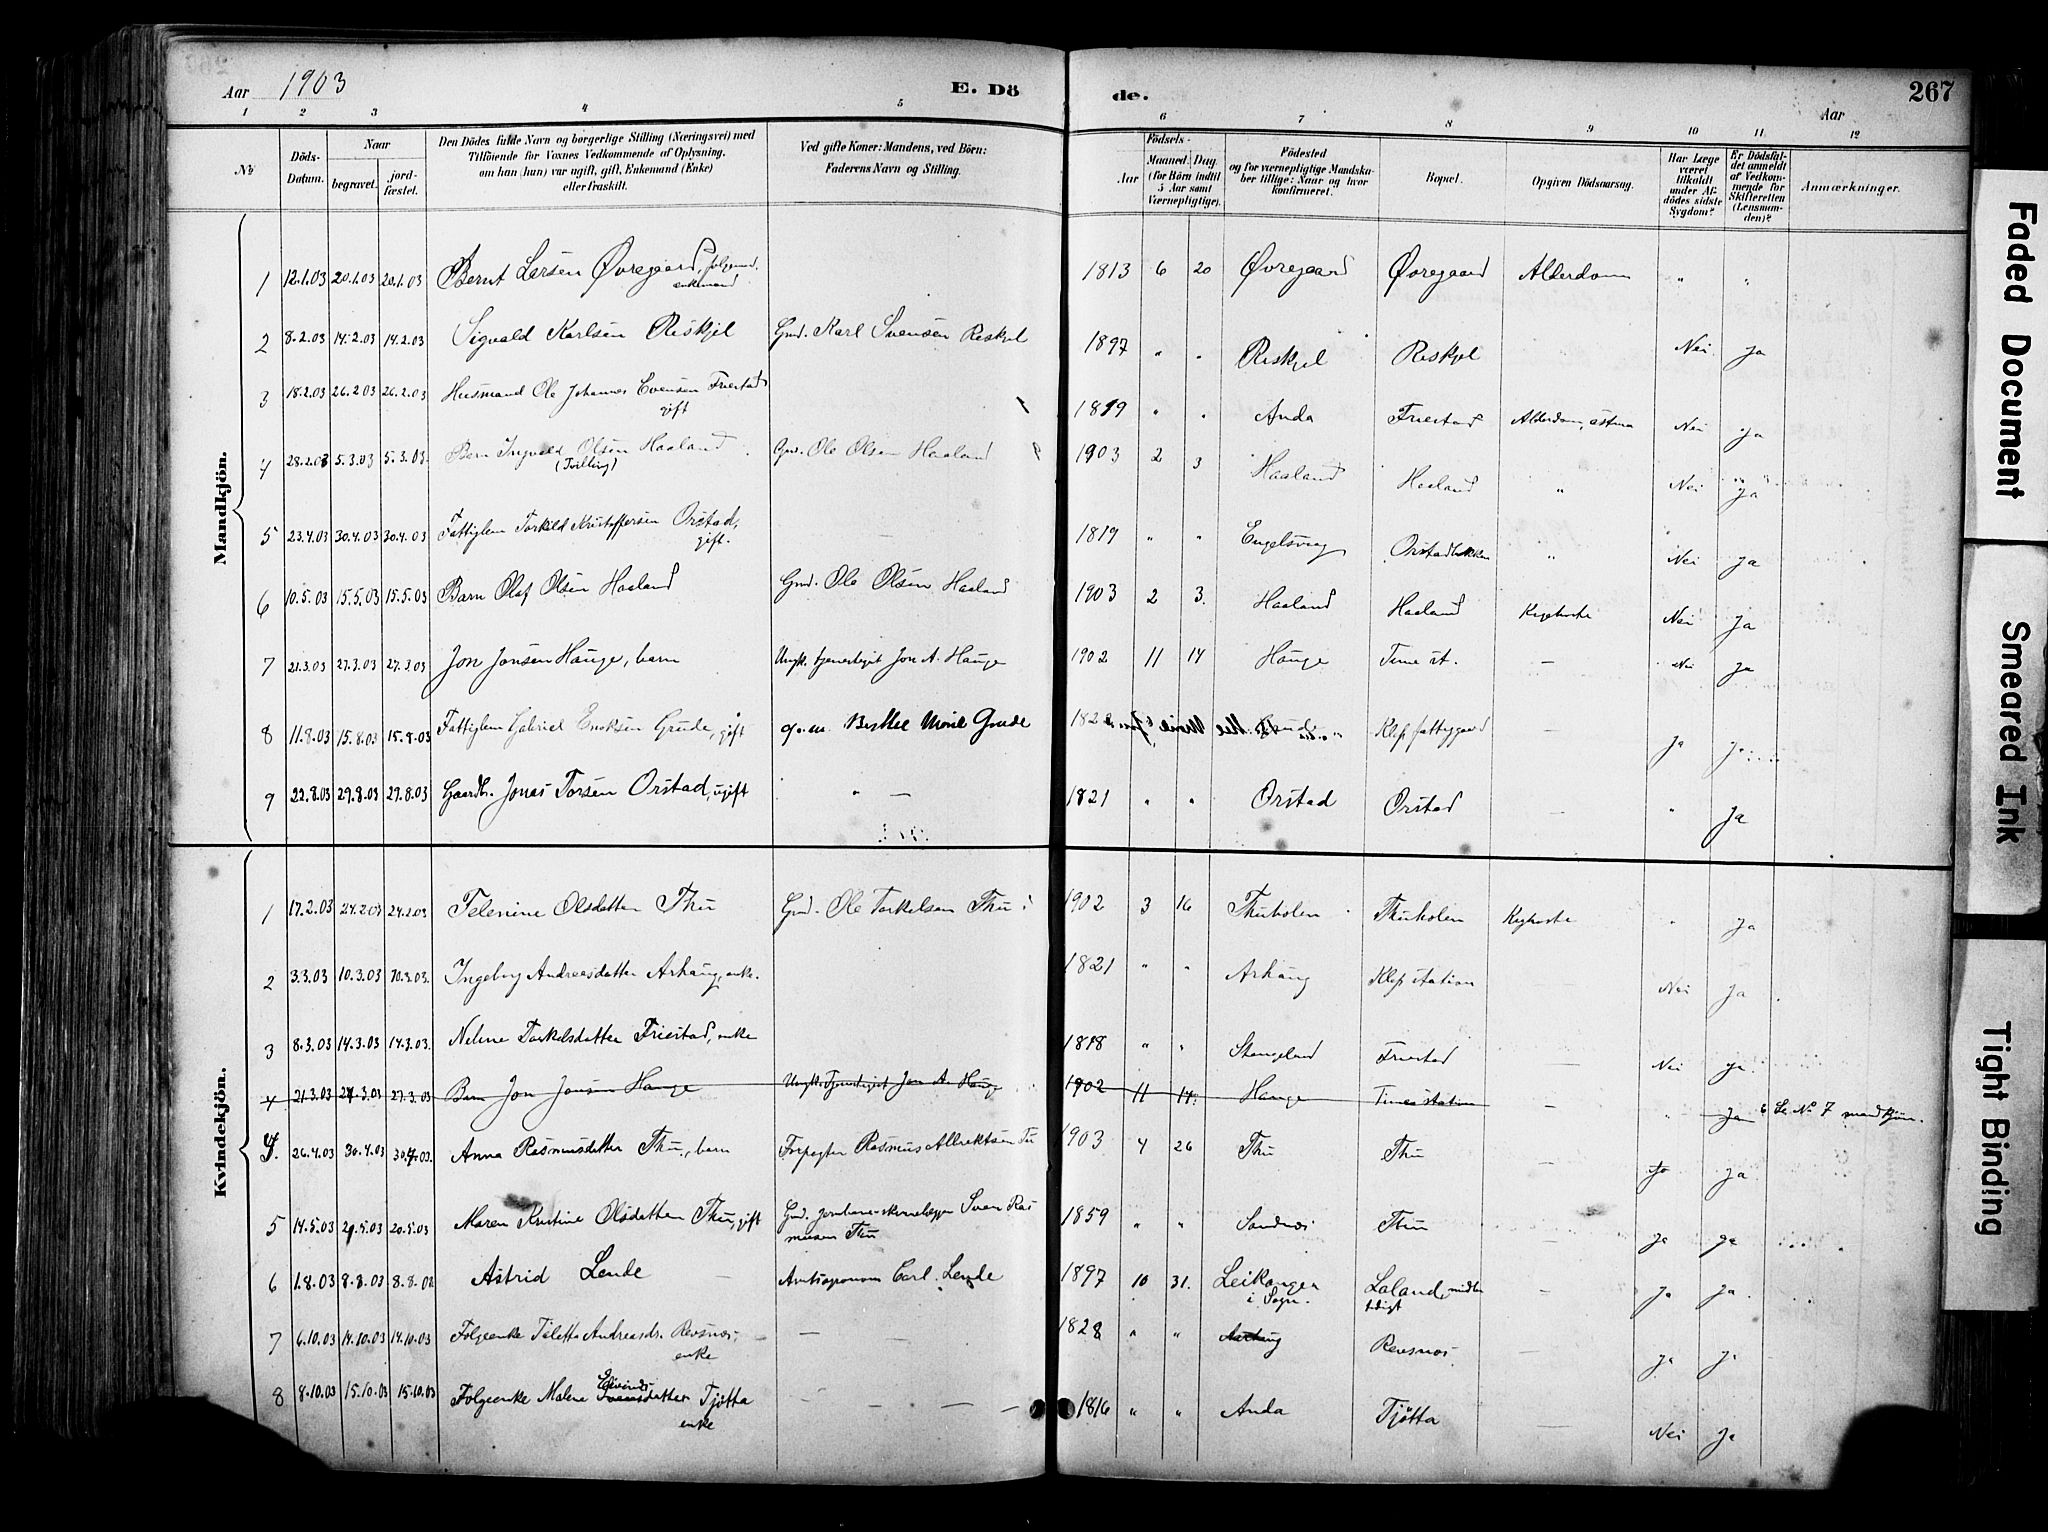 Aar 1903 E. Dö
de. Aar 267
1 2 3 4 5 6 7 8 9 10 11 12
No
Döds-Datum.
Naar
begravet. jordfæstet.
Den Dödes fulde Navn og borgerlige Stilling (Næringsvei) med
Tilföiende for Voxnes Vedkommende af Oplysning,
om han (hun) var ugift, gift, Enkemand (Enke)
eller fraskilt.
Ved gifte Koner: Mandens, ved Börn:
Faderens Navn og Stilling.
Födsels-
Aar Maaned Dag
(for Börn indtil
5 Aar samt
Værnepligtige).
Födested
og for værnepligtige Mandska-
ber tillige: Naar og hvor
konfirmeret.
Bopæl.
Opgiven Dödsaarsag.
Har Læge
været
tilkaldt
under Af-
dödes sidste
Sygdom?
Er Dödsfal-
det anmeldt
af Vedkom-
mende for
Skifteretten
(Lensman-
den)?
Anmærkninger.
Mandkjön.
1 12.1.03 20.1.03 20.1.03 Bernt Larsen Øvregaard, enkemand 1813 6 20 Øvregaard Øvregaard Alderdom " "
2 8.2.03 14.2.03 14.2.03 Sigvald Karlsen Reskjel Gmd. Karl Svensen Reskjel 1897 " " Reskjel Reskjel Nei Ja
3 18.2.03 26.2.03 26.2.03 Husmand Ole Johannes Evensen Friestad gift 1819 " " Anda Friestad Alderdom, astma Nei Ja
4 28.2.03 5.3.03 5.3.03. Barn Ingvald Olsen Haaland (Tvilling) Gmd. Ole Olsen Haaland 1903 2 3 Haaland Haaland " Nei Ja
5 23.4.03 30.4.03 30.4.03 Fattiglem Torkild Kristoffersen Orstad, gift. 1819 " " Engelsvog Orstadbakken " Nei Ja
6 10.5.03 15.5.03 15.5.03 Barn Olaf Olsen Haaland Gmd. Ole Olsen Haaland 1903 2 3. Haaland Haaland Kighoste Nei Ja
7 21.3.03 27.3.03 27.3.03 Jon Jonsen Hauge, barn Ungk. Jon A. Hauge 1902 11 14 Hauge Time st. — Nei Ja
8 11.8.03 15.8.03 15.8.03 Fattiglem Gabriel Grude, gift g. m. Berthe Grude Klep fattiggaard — Ja Ja
9 22.8.03 29.8.03 29.8.03 Gaardbr. Jonas Torsen Orstad, ugift " — 1821 " " Orstad Orstad — " Ja
Kvindekjön.
1 17.2.03 24.2.03 24.2.03 Telenine Olsdatter Thu Gmd. Ole Torkelsen Thu 1902 3 16 Thuholen Thuholen Kighoste " Ja
2 3.3.03 10.3.03 10.3.03. Ingeborg Andreasdatter Arhaug, enke. 1821 " " Arhaug Klep station — Nei Ja
3 8.3.03 14.3.03 14.3.03. Nelene Torkelsdatter Friestad, enke 1818 " " Stangeland Friestad — Nei Ja
4 21.3.03 27.3.03 27.3.03 Barn Jon Jonsen Hauge Ungk. Jon A. Hauge 1902 11 14. Hauge Time station — " Ja Se No 7 mandkjøn.
4. 26.4.03 30.4.03 30.4.03. Anna Rasmusdatter Thu, barn Forpagter Rasmus Albrektsen Tu 1903 4 26 Thu Thu — Ja Ja
5 14.5.03 20.5.03 20.5.03 Maren Kristine Olsdatter Thu, gift Gmd. Sven Rasmussen Thu 1859 " " Sandnes Thu Ja Ja
6 1.8.03 8.8.03 8.8.03 Astrid Lende — Amtsagronom Carl Lende 1897 10 31. Leikanger i Sogn. Laland, midlertidigt — Ja Ja
7 6.10.03 14.10.03 14.10.03 Folgeenke Tøletta Andreasdr. Revsnes, enke — — 1828 " " Aarhaug Revsnes Ja Ja
8 8.10.03 15.10.03 15.10.03 Folgeenke Malene Eivindsdatter Tjøtta enke — — — — 1816 " " Anda Tjøtta Nei Ja
Faded Document
Smeared Ink
Tight Binding